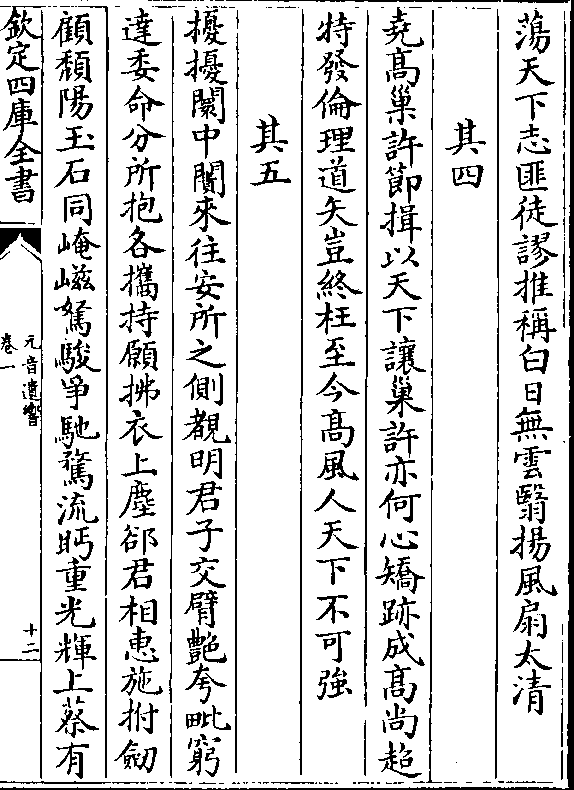 蕩天下志匪徒謬推稱白日無雲翳揚風扇太清
其四
堯髙巢許節揖以天下讓巢許亦何心矯跡成髙尚超
特發倫理道矢豈終枉至今髙風人天下不可強
其五
擾擾闤中闠來往安所之側覩明君子交臂艶夸毗窮
達委命分所抱各攜持願拂衣上塵郤君相恵施拊劒
顧頽陽玉石同崦嵫駑駿爭馳騖流眄重光輝上蔡有
欽定四庫全書
元音遺響
卷一
十二